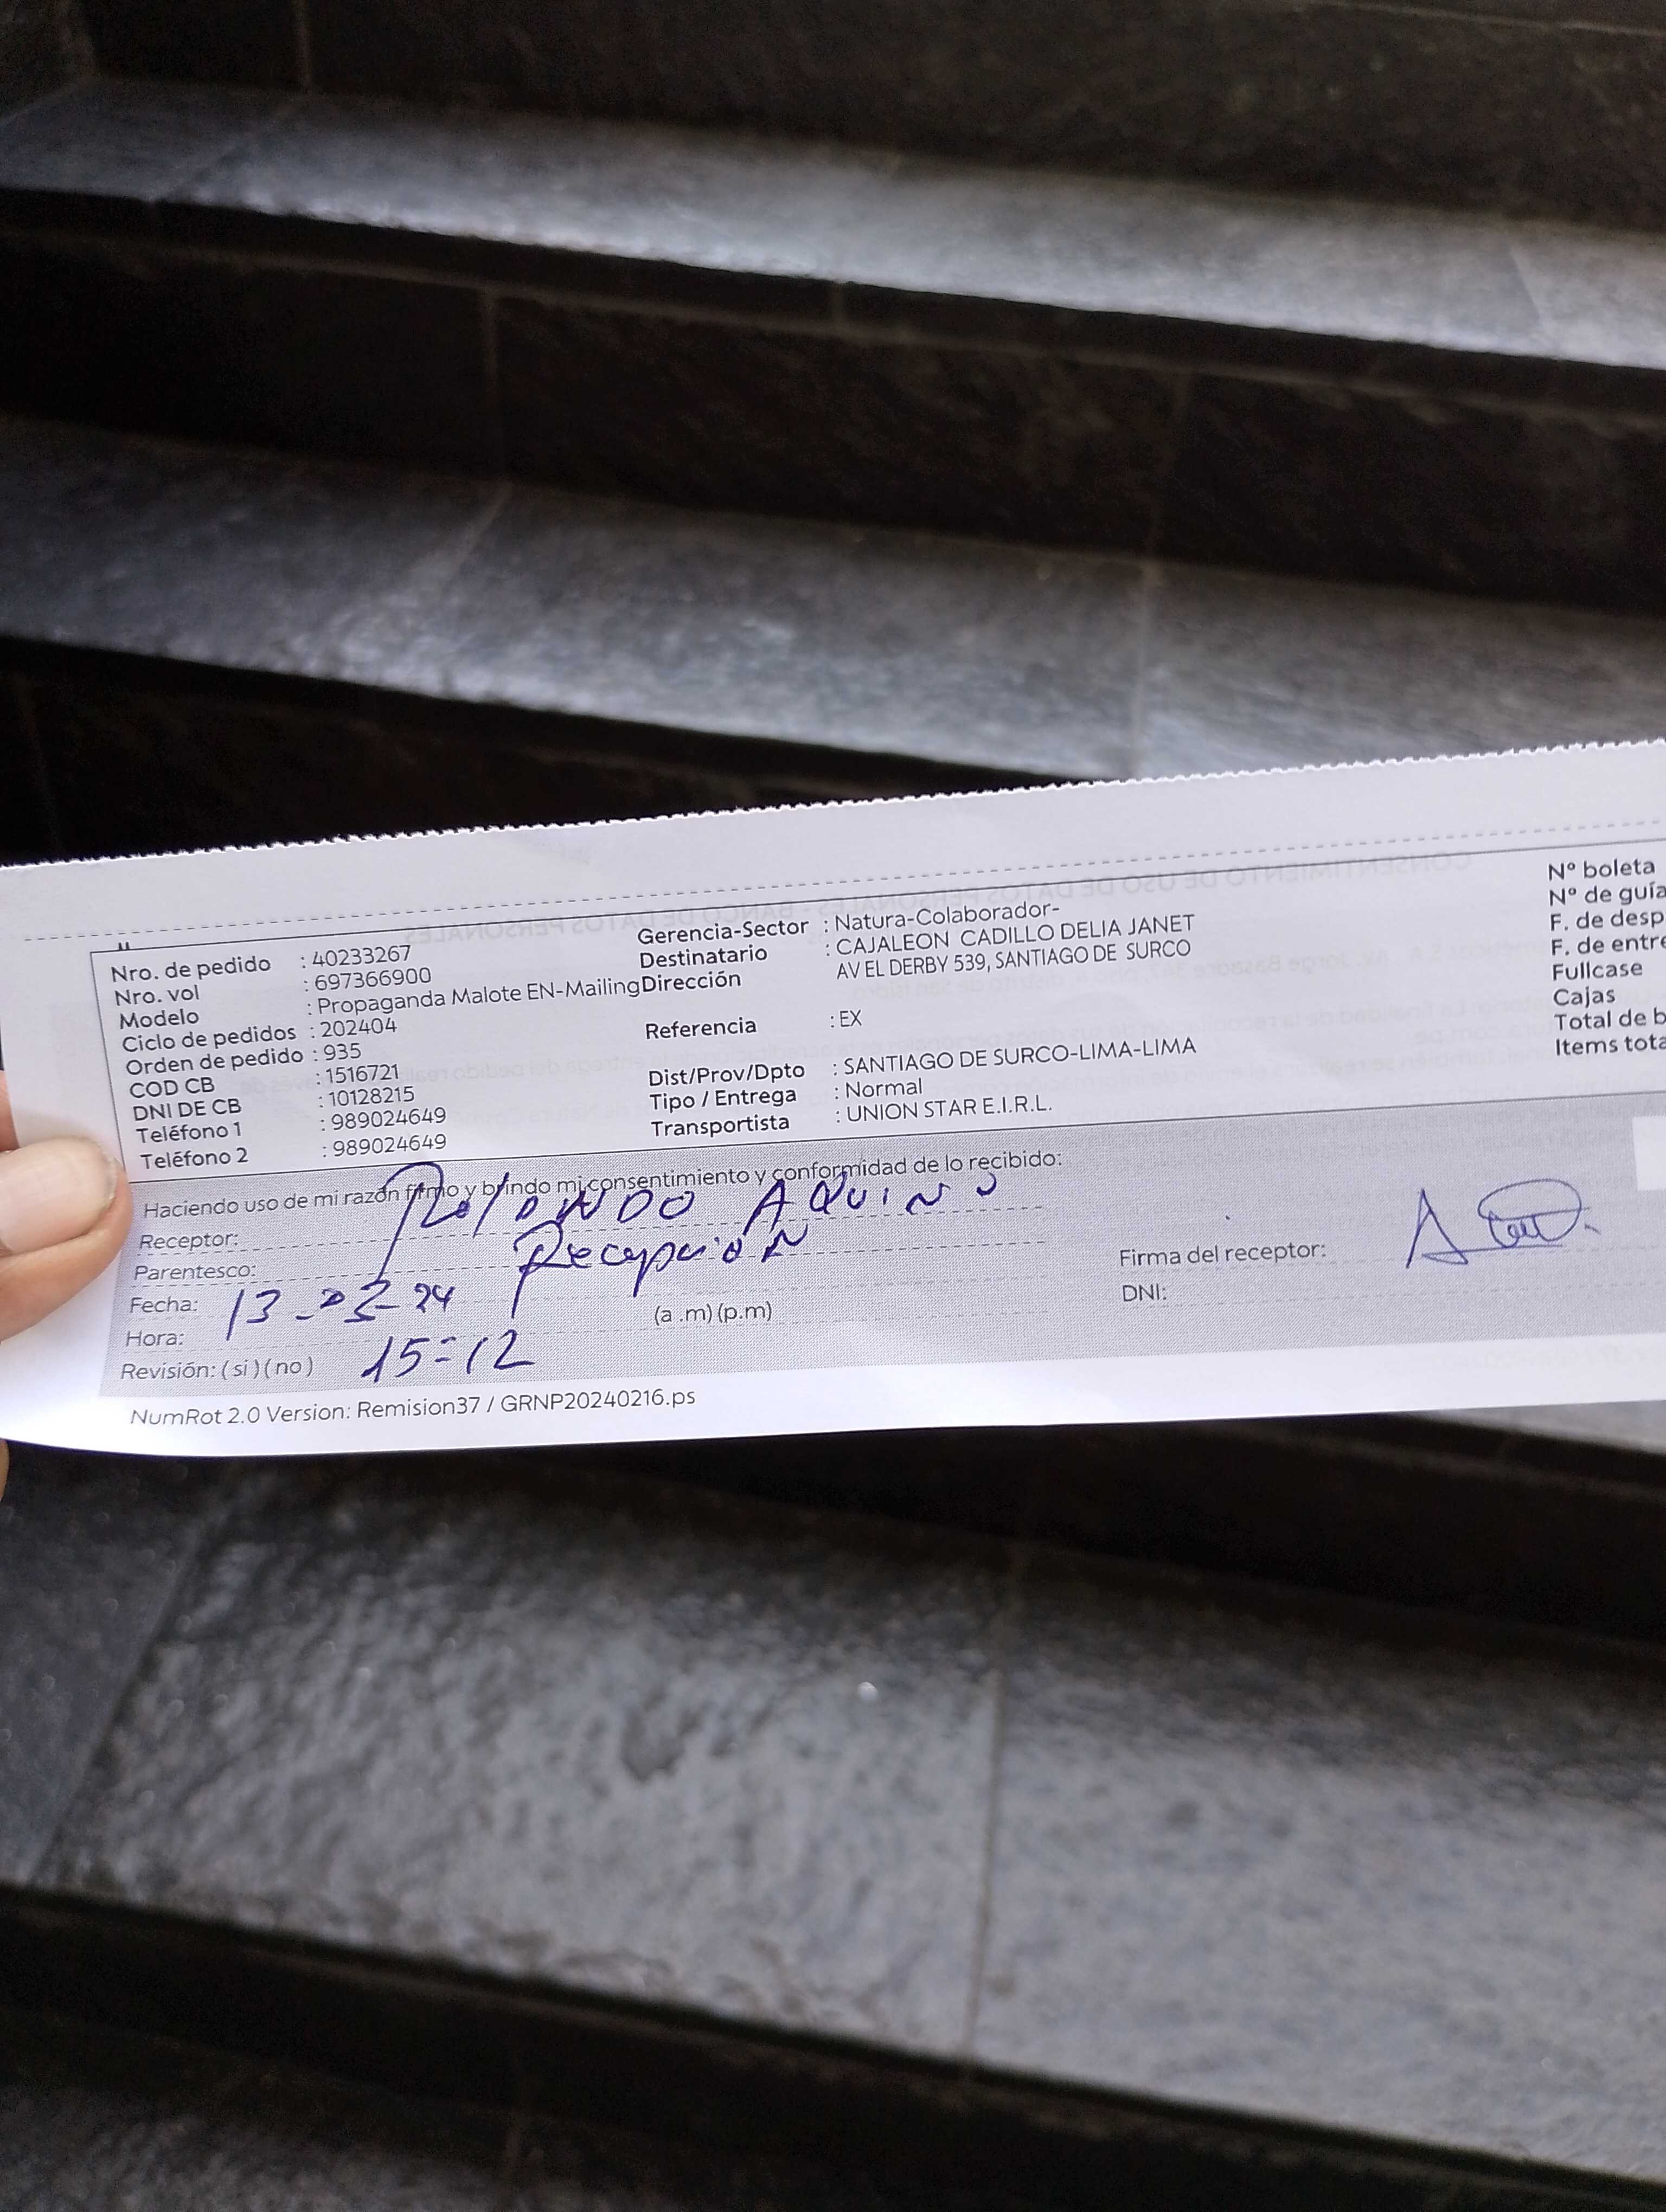 Nro. de pedido : 40233267
Nro. vol : 697366900
Modelo : Propaganda Malote EN-Mailing
Ciclo de pedidos : 202404
Orden de pedido : 935
COD CB : 1516721
DNI DE CB : 10128215
Teléfono 1 : 989024649
Teléfono 2 : 989024649
Gerencia-Sector : Natura-Colaborador-
Destinatario : CAJALEON CADILLO DELIA JANET
Dirección AV EL DERBY 539, SANTIAGO DE SURCO
Referencia : EX
Dist/Prov/Dpto : SANTIAGO DE SURCO-LIMA-LIMA
Tipo / Entrega : Normal
Transportista : UNION STAR E.I.R.L.
Nº boleta
Nº de guía
F. de desp
F. de entre
Fullcase
Cajas
Total de b
Items tota
Haciendo uso de mi razón firmo y brindo mi consentimiento y conformidad de lo recibido:
Receptor: ROLANDO AQUINO
Parentesco: Recepción
Fecha: 13
Hora: 15:12 (a .m) (p.m)
Revisión: ( si ) ( no )
Firma del receptor:
DNI:
NumRot 2.0 Version: Remision37 / GRNP20240216.ps